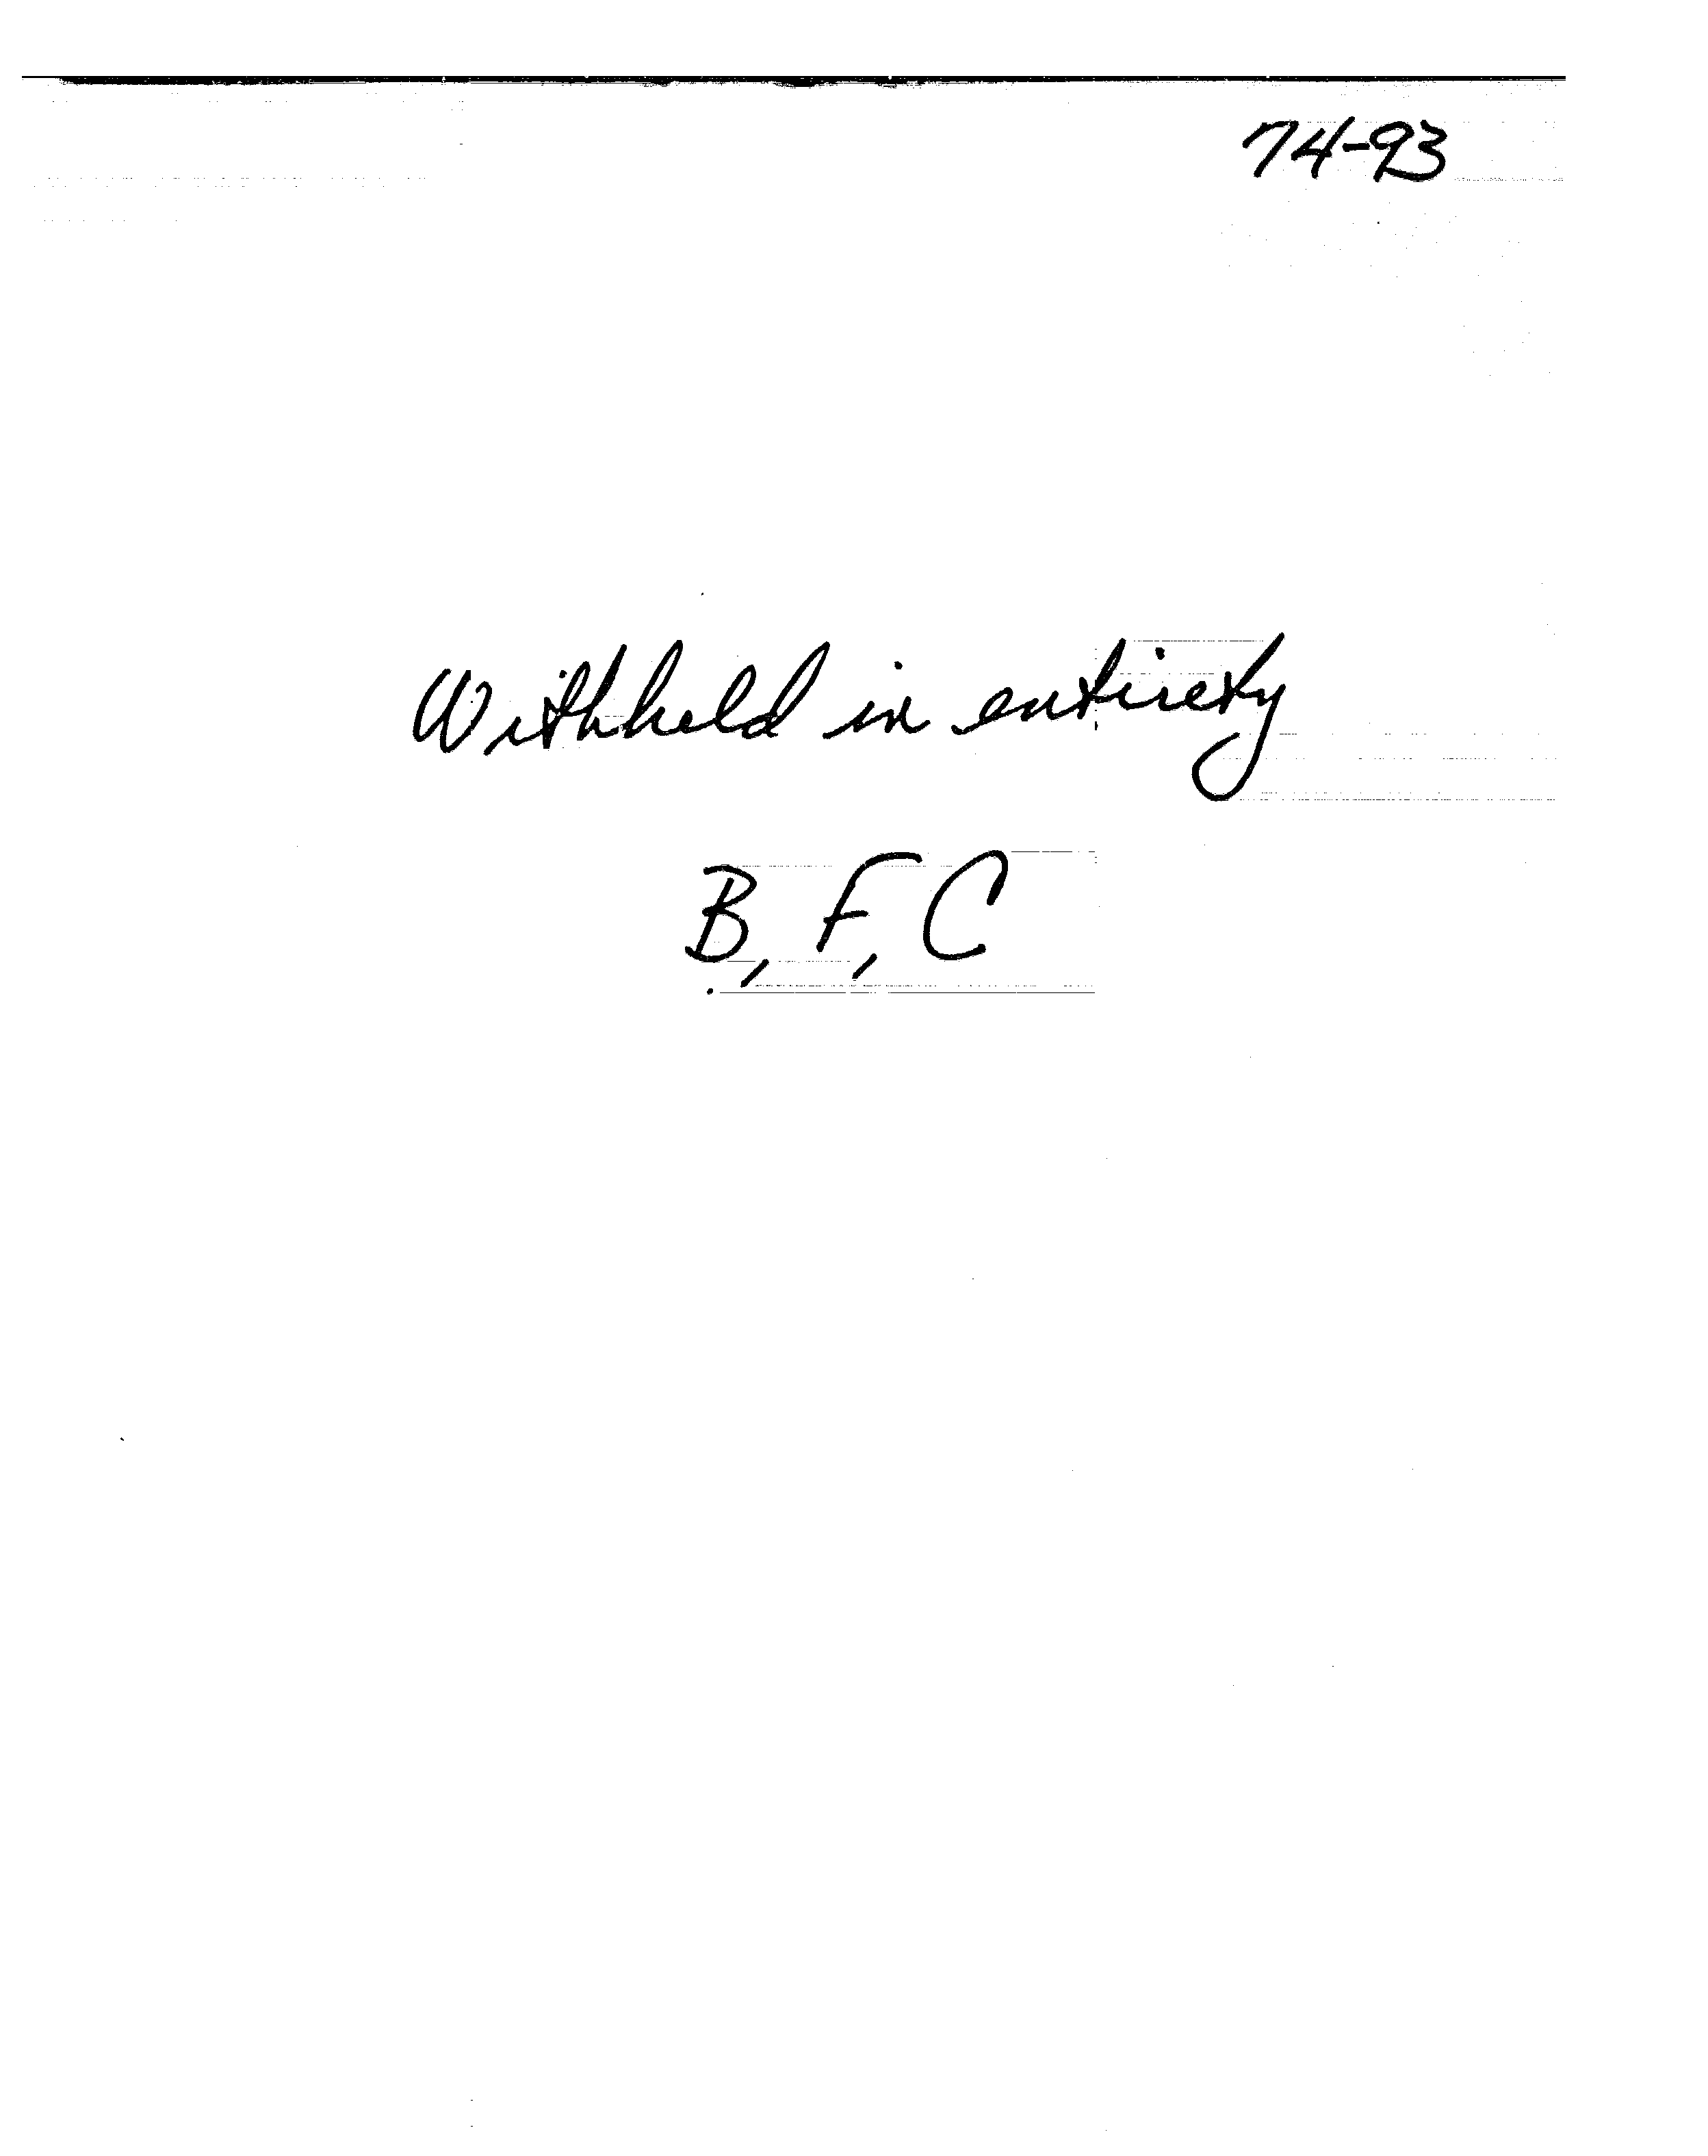 74-93
Withheld in entirety
B, F, C